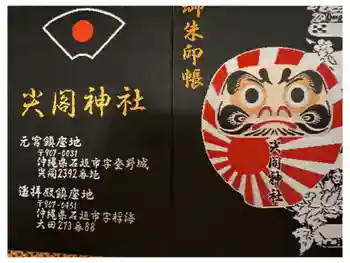 御朱印帳
尖閣神社
元宮鎮座地
〒907-0031
沖縄県石垣市字登野城
尖閣2392番地
遥拝殿鎮座地
〒907-0451
沖縄県石垣市字桴海
大田273番88
尖閣神社